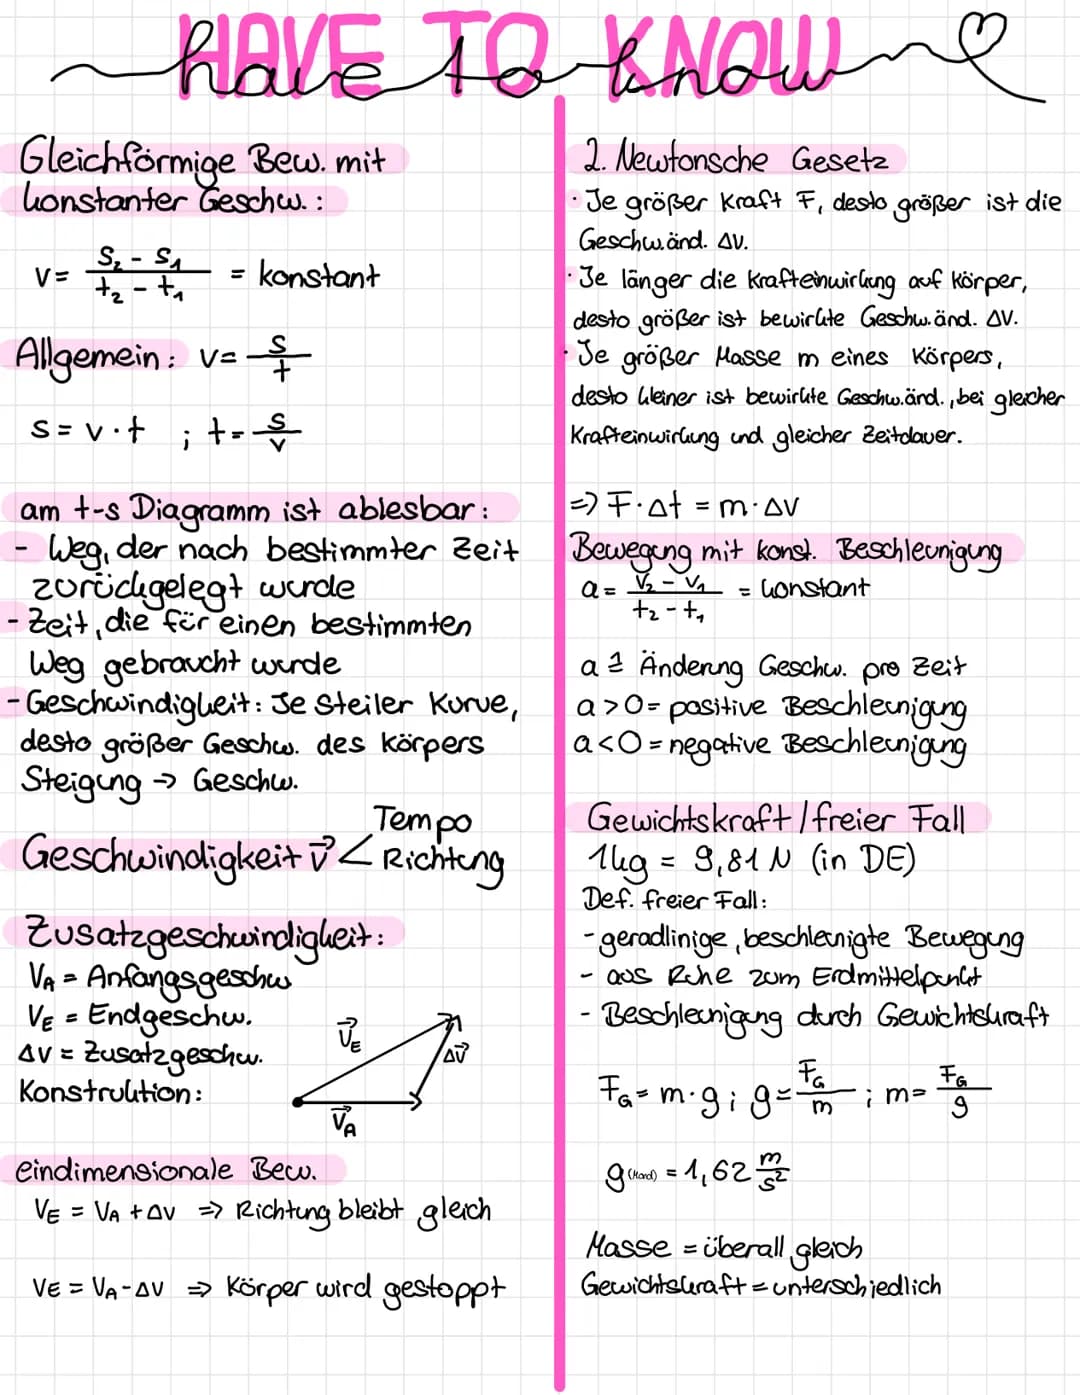 HAVE TO KNOW
have to know
Gleichförmige Bew. mit
konstanter Geschw. :
v = (s₂ - s₁)/(t₂ - t₁) = konstant
Allgemein: v = s/t
s = v · t ; t = s/v
am t-s Diagramm ist ablesbar:
- Weg, der nach bestimmter Zeit
zurückgelegt wurde
- Zeit, die für einen bestimmten
Weg gebraucht wurde
- Geschwindigkeit: Je Steiler Kurve,
desto größer Geschw. des Körpers
Steigung → Geschw.
Geschwindigkeit v⃗ < Tempo
Richtung
Zusatzgeschwindigkeit:
VA = Anfangsgeschw
VE = Endgeschw.
ΔV = Zusatzgeschw.
Konstruktion:
V⃗E
ΔV⃗
V⃗A
eindimensionale Bew.
VE = VA + ΔV ⇒ Richtung bleibt gleich
VE = VA - ΔV ⇒ Körper wird gestoppt
2. Newtonsche Gesetz
· Je größer Kraft F, desto größer ist die
Geschwänd. ΔV.
· Je länger die Krafteinwirkung auf Körper,
desto größer ist bewirkte Geschw.änd. ΔV.
· Je größer Masse m eines Körpers,
desto kleiner ist bewirkte Geschw.änd., bei gleicher
Krafteinwirkung und gleicher Zeitdauer.
⇒ F · Δt = m · ΔV
Bewegung mit konst. Beschleunigung
a = (V₂ - V₁)/(t₂ - t₁) = konstant
a ≙ Änderung Geschw. pro Zeit
a > 0 = positive Beschleunigung
a < 0 = negative Beschleunigung
Gewichtskraft / freier Fall
1kg = 9,81 N (in DE)
Def. freier Fall:
- geradlinige, beschleunigte Bewegung
- aus Ruhe zum Erdmittelpunkt
- Beschleunigung durch Gewichtskraft
FG = m · g ; g = FG/m ; m = FG/g
g(Mond) = 1,62 m/s²
Masse = überall gleich
Gewichtskraft = unterschiedlich